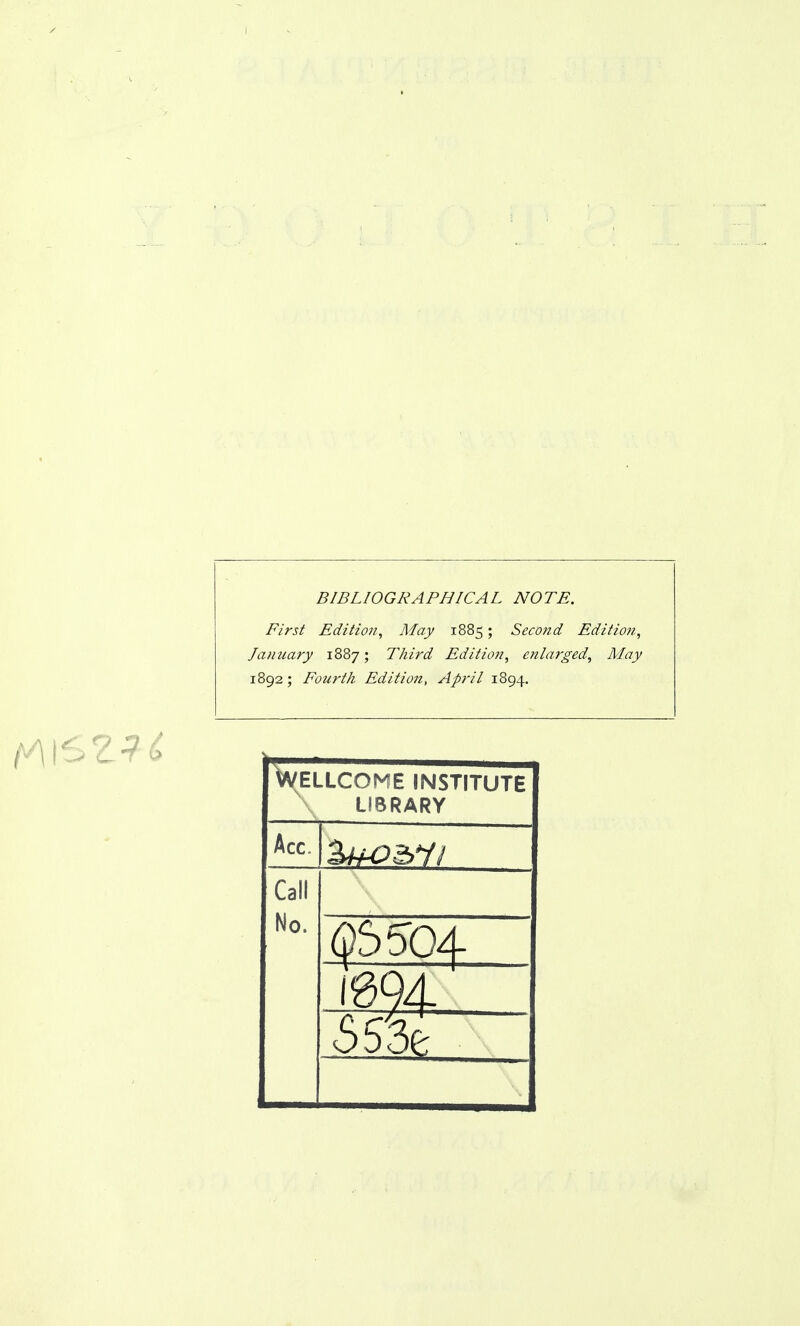 BIBLIOGRAPHICAL NOTE.
First Edition, May 1885; Second Edition,
January 1887; Third Edition, enlarged, May
1892; Fourth Edition, April 1894.
M15276
WELLCOME INSTITUTE
LIBRARY
Acc.
Call
No.
QS504
1894
S53e